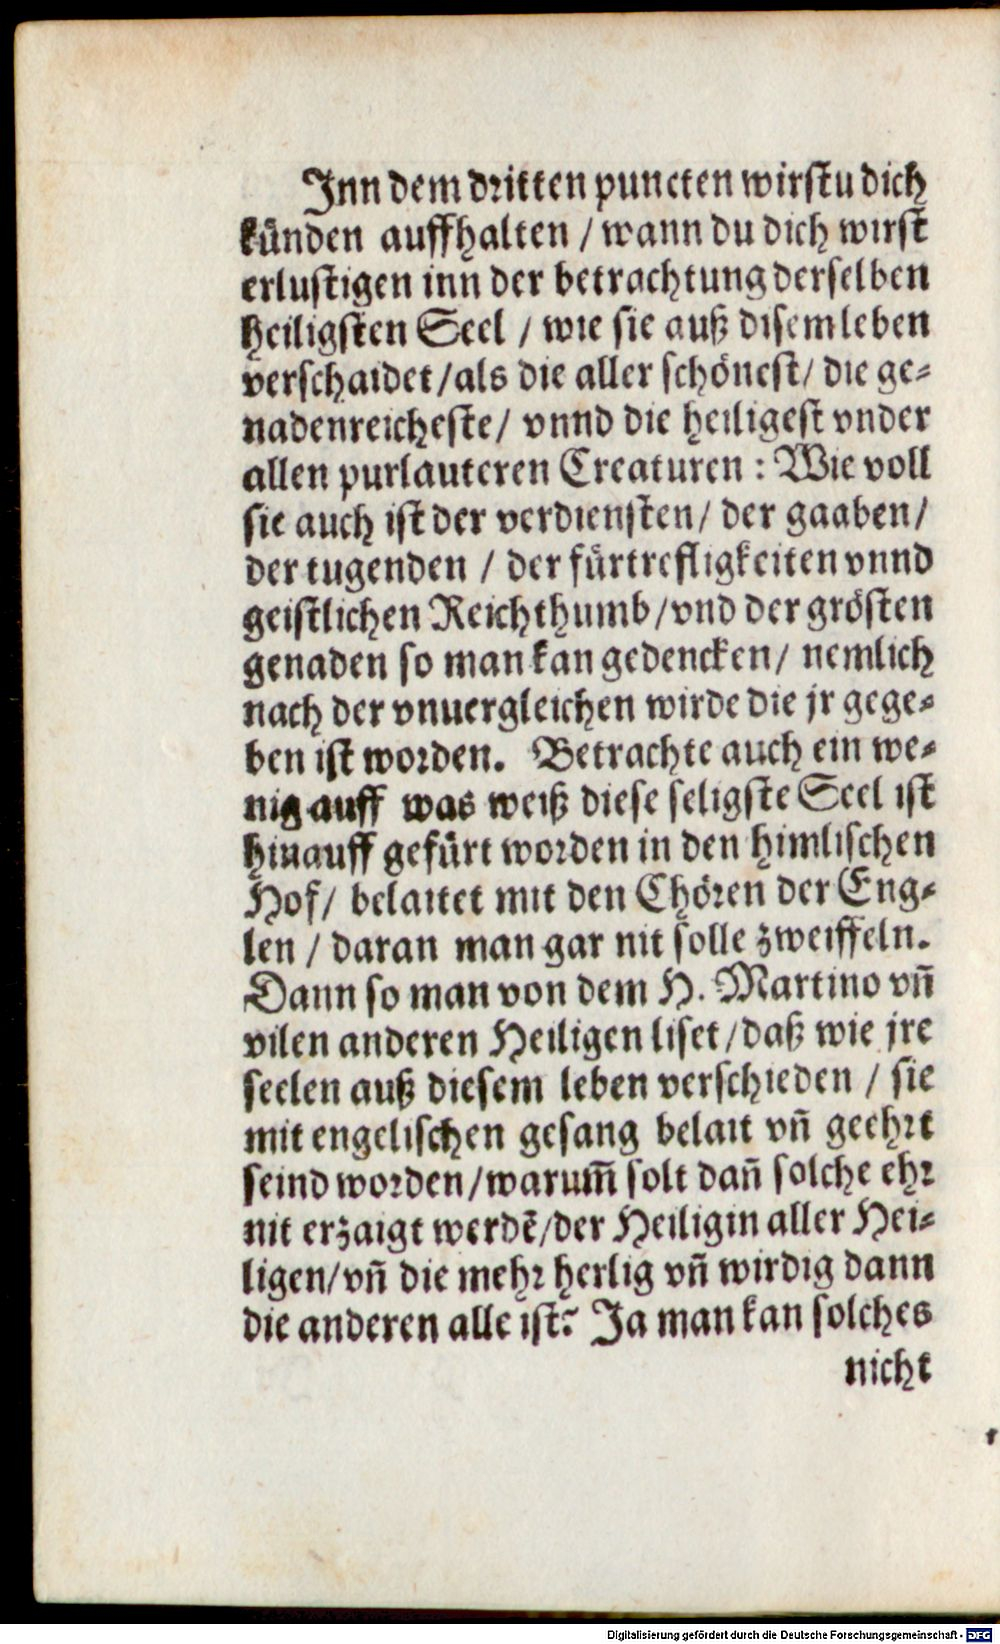 Inn dem dritten puncten wirstu dich
künden auffhalten / wann du dich wirst
erlustigen inn der betrachtung derselben
heiligsten Seel / wie sie auß disem leben
verschaidet / als die aller schönest / die ge-
nadenreicheste / vnnd die heiligest vnder
allen purlauteren Creaturen : Wie voll
sie auch ist der verdiensten / der gaaben /
der tugenden / der fürtrefligkeiten vnnd
geistlichen Reichthumb / vnd der grösten
genaden so man kan gedencken / nemlich
nach der vnuergleichen wirde die jr gege-
ben ist worden. Betrachte auch ein we-
nig auff was weiß diese seligste Seel ist
hinauff gefürt worden in den himlischen
Hof / belaitet mit den Chören der Eng-
len / daran man gar nit solle zweiffeln.
Dann so man von dem H. Martino vñ
vilen anderen Heiligen liset / daß wie jre
seelen auß diesem leben verschieden / sie
mit engelischen gesang belait vñ geehrt
seind worden / warum̃ solt dañ solche ehr
nit erzaigt werdẽ / der Heiligin aller Hei-
ligen / vñ die mehr herlig vñ wirdig dann
die anderen alle ist? Ja man kan solches
nicht
Digitalisierung gefördert durch die Deutsche Forschungsgemeinschaft - DFG